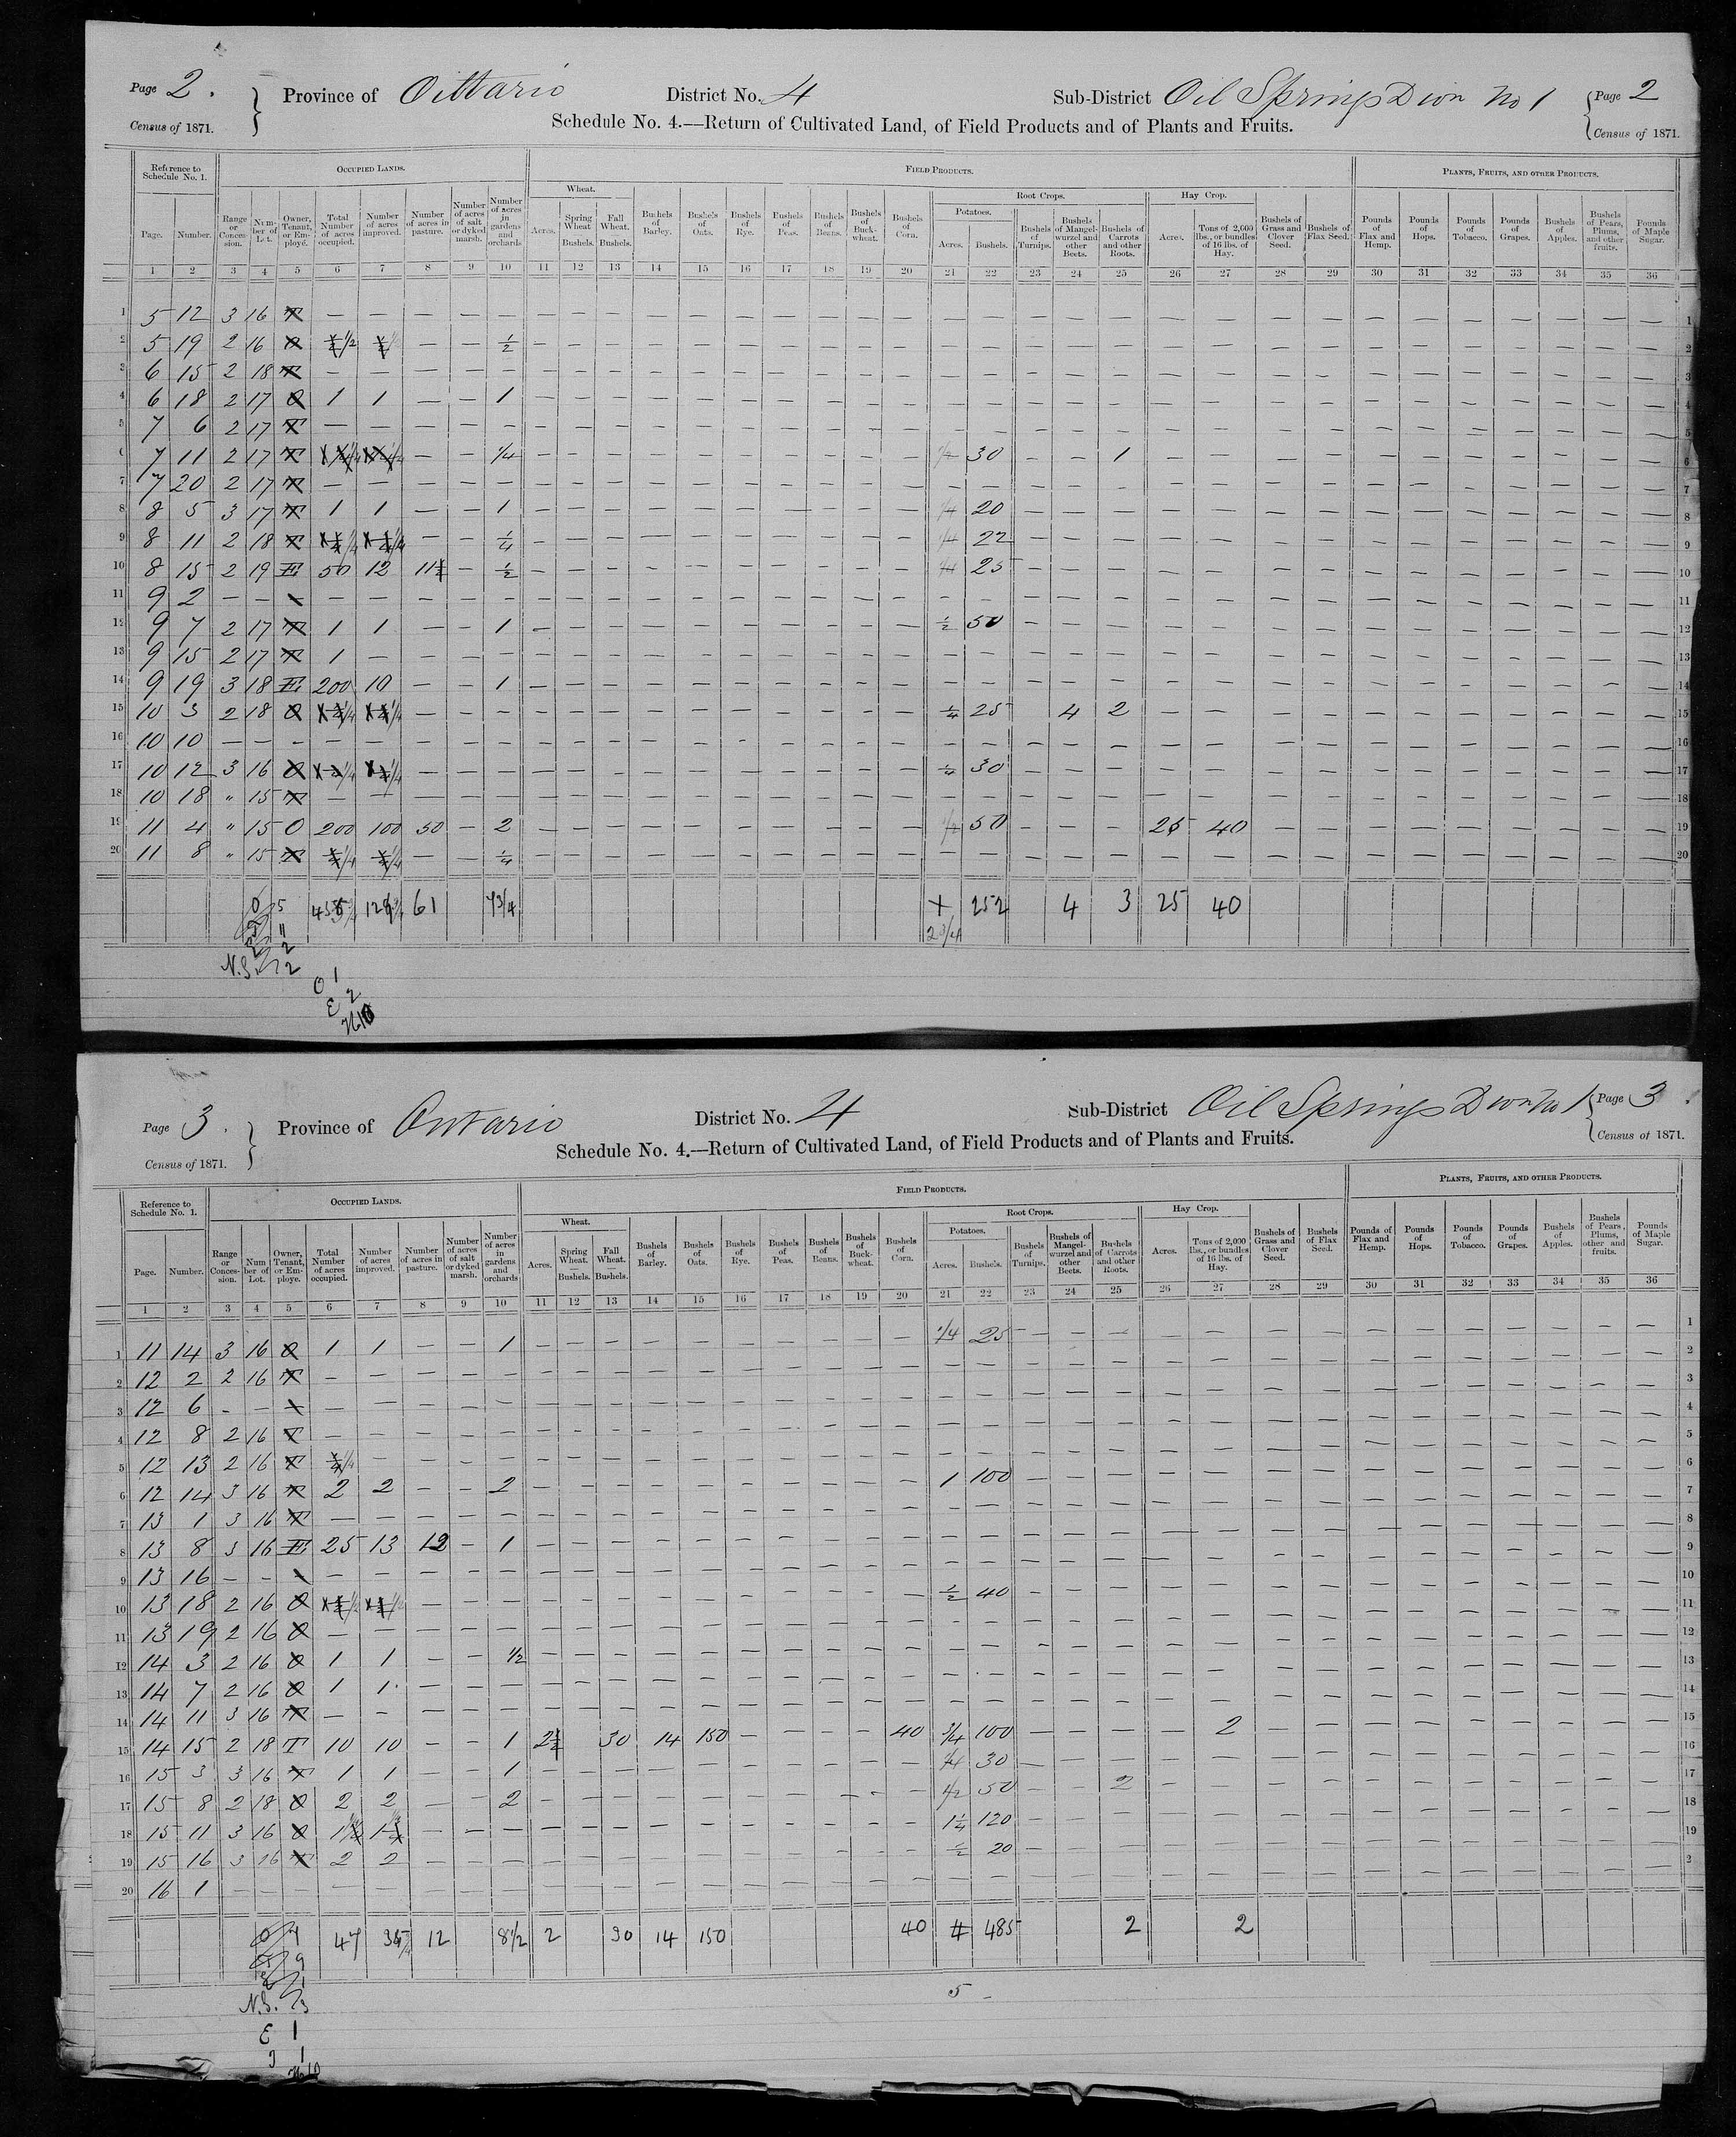 Page 2. Province of Ontario District No. 4 Sub-District Oil Springs Divn No 1 Page 2
Census of 1871. Schedule No. 4.—Return of Cultivated Land, of Field Products and of Plants and Fruits. Census of 1871.
Reference to Schedule No. 1. OCCUPIED LANDS. FIELD PRODUCTS. PLANTS, FRUITS, AND OTHER PRODUCTS.
Wheat. Root Crops. Hay Crop.
Potatoes.
Page. Number. Range or Concession. Number of Lot. Owner, Tenant, or Employé. Total Number of acres occupied. Number of acres improved. Number of acres in pasture. Number of acres of salt or dyked marsh. Number of acres in gardens and orchards Acres. Spring Wheat Bushels. Fall Wheat. Bushels. Bushels of Barley. Bushels of Oats. Bushels of Rye. Bushels of Peas. Bushels of Beans. Bushels of Buckwheat. Bushels of Corn. Acres. Bushels. Bushels of Turnips. Bushels of Mangel-wurzel and other Beets. Bushels of Carrots and other Roots. Acres. Tons of 2,000 lbs., or bundles of 16 lbs. of Hay. Bushels of Grass and Clover Seed. Bushels of Flax Seed. Pounds of Flax and Hemp. Pounds of Hops. Pounds of Tobacco. Pounds of Grapes. Bushels of Apples. Bushels of Pears, Plums, and other fruits. Pounds of Maple Sugar.
1 2 3 4 5 6 7 8 9 10 11 12 13 14 15 16 17 18 19 20 21 22 23 24 25 26 27 28 29 30 31 32 33 34 35 36
1 5 12 3 16 T — — — — — 1
2 5 19 2 16 O 1/2 — — 1/2 2
3 6 15 2 18 T — — — — — 3
4 6 18 2 17 O 1 1 — — 1 4
5 7 6 2 17 T — — — — — 5
6 7 11 2 17 T 1/4 1/4 — — 1/4 1/2 30 — — 1 6
7 7 20 2 17 T — — — — — 7
8 8 5 3 17 T 1 1 — — 1 1/4 20 8
9 8 11 2 18 T 1/4 1/4 — — 1/4 1/4 22 9
10 8 15 2 19 E 50 12 11½ — 1/2 1/4 25 10
11 9 2 — — — — — — — — 11
12 9 7 2 17 T 1 1 — — 1 1/2 50 12
13 9 15 2 17 T 1 — — — — 13
14 9 19 3 18 E 200 10 — — 1 14
15 10 3 2 18 O 1/4 1/4 — — — 1/4 25 4 2 15
16 10 10 — — — — — — — — 16
17 10 12 3 16 O 1/4 1/4 — — — 1/4 30 17
18 10 18 " 15 T — — — — — 18
19 11 4 " 15 O 200 100 50 — 2 1/2 50 — — — 25 40 19
20 11 8 " 15 T 1/4 1/4 — — 1/4 20
O 5 61 7 3/4 252 4 3 25 40
T 11 2 3/4
E 2
N.S. 2
O 1
E 2
Page 3. Province of Ontario District No. 4 Sub-District Oil Springs Divn No 1 Page 3.
Census of 1871. Schedule No. 4.—Return of Cultivated Land, of Field Products and of Plants and Fruits. Census of 1871.
Reference to Schedule No. 1. OCCUPIED LANDS. FIELD PRODUCTS. PLANTS, FRUITS, AND OTHER PRODUCTS.
Wheat. Root Crops. Hay Crop.
Potatoes.
Page. Number. Range or Concession. Number of Lot. Owner, Tenant, or Employe. Total Number of acres occupied. Number of acres improved. Number of acres in pasture. Number of acres of salt or dyked marsh. Number of acres in gardens and orchards Acres. Spring Wheat. Bushels. Fall Wheat. Bushels. Bushels of Barley. Bushels of Oats. Bushels of Rye. Bushels of Peas. Bushels of Beans. Bushels of Buckwheat. Bushels of Corn. Acres. Bushels. Bushels of Turnips. Bushels of Mangel-wurzel and other Beets. Bushels of Carrots and other Roots. Acres. Tons of 2,000 lbs., or bundles of 16 lbs. of Hay. Bushels of Grass and Clover Seed. Bushels of Flax Seed. Pounds of Flax and Hemp. Pounds of Hops. Pounds of Tobacco. Pounds of Grapes. Bushels of Apples. Bushels of Pears, Plums, other and fruits. Pounds of Maple Sugar.
1 2 3 4 5 6 7 8 9 10 11 12 13 14 15 16 17 18 19 20 21 22 23 24 25 26 27 28 29 30 31 32 33 34 35 36
1 11 14 3 16 O 1 1 — — 1 1/4 25 1
2 12 2 2 16 T — — — — — 2
3 12 6 — — — — — — — — 3
4 12 8 2 16 T — — — — — 4
5 12 13 2 16 T 1/4 — — — — 5
6 12 14 3 16 T 2 2 — — 2 1 100 6
7 13 1 3 16 T — — — — — 7
8 13 8 3 16 E 25 13 12 — 1 8
9 13 16 — — — — — — — — 9
10 13 18 2 16 O 1/2 1/2 — — — 1/2 40 10
11 13 19 2 16 O — — — — — 11
12 14 3 2 16 O 1 1 — — 1/2 12
13 14 7 2 16 O 1 1 — — — 13
14 14 11 3 16 T — — — — — 14
15 14 15 2 18 T 10 10 — — 1 2½ 30 14 150 — — — — 40 3/4 100 — — — — 2 15
16 15 3 3 16 T 1 1 — — 1 1/4 30 16
17 15 8 2 18 O 2 2 — — 2 1/2 50 — — 2 17
18 15 11 3 16 O — — — 1¼ 120 18
19 15 16 3 16 T 2 2 — — — 1/2 20 19
20 16 1 — — — — — — — — 2
O 7 47 12 8 1/2 2 30 14 150 40 4 485 2 2
T 9
E 1 5
N.S. 3
E 1
T 1